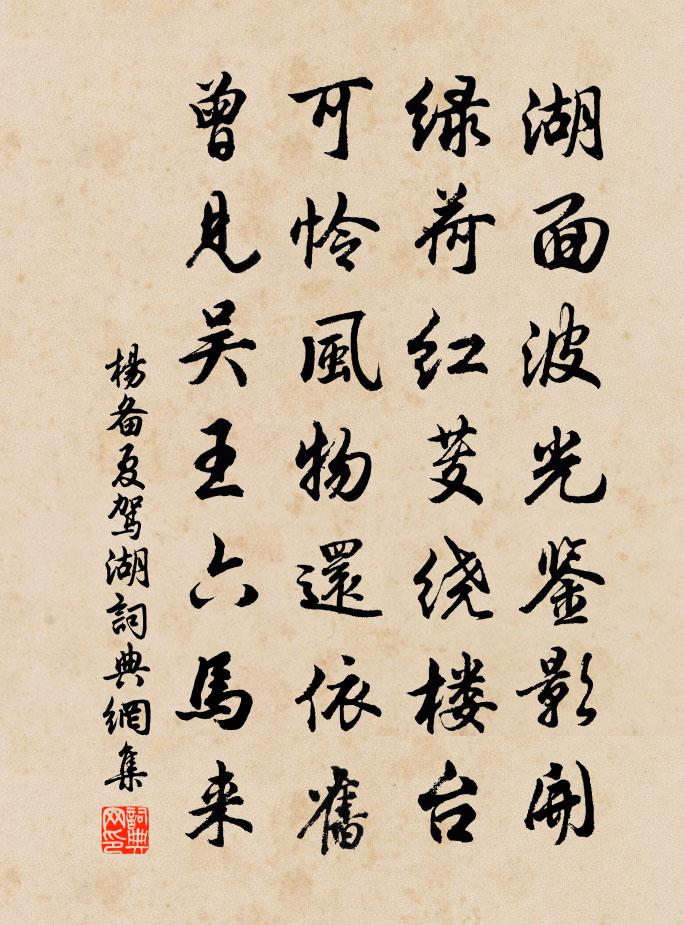 湖面波光鉴影開
緑荷红芰绕楼台
可怜風物還依舊
曾見吴王六馬来
楊备夏驾湖詞典網集
詞典網印